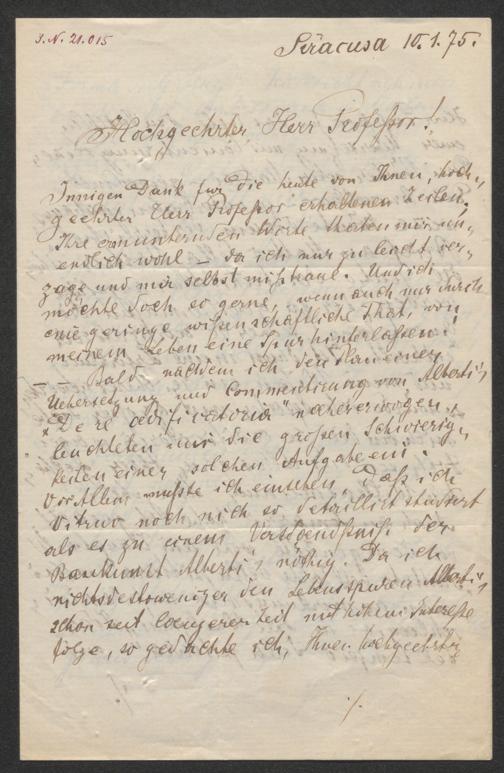 J.N. 21.015
Siracusa 10.1.75.
Hochgeehrter Herr Professor!
Innigen Dank für die heute von Ihnen, hoch-
geehrter Herr Professor erhaltenen Zeilen.
Ihre ermunternden Worte thaten mir un-
endlich wohl – da ich nur zu leicht ver-
zage und mir selbst mißtraue. Und ich
möchte doch so gerne, wenn auch nur durch
eine geringe wissenschaftliche That, von
meinem Leben eine Spur hinterlassen!
— Bald nachdem ich den Plan einer
Uebersetzung und Commentirung von Alberti's
"De re aedificatoria" näher erwogen,
leuchteten mir die großen Schwierig-
keiten einer solchen Aufgabe ein.
Vor Allem mußte ich einsehen, daß ich
Vitruv noch nich so detaillirt studiert
als es zu einem Verständniß der
Baukunst Alberti's nöthig. Da ich
nichtsdestoweniger den Lebensspuren Alberti's
schon seit laengerer Zeit mit hohem Interesse
folge, so gedachte ich, Ihnen hochgeehrter
./.